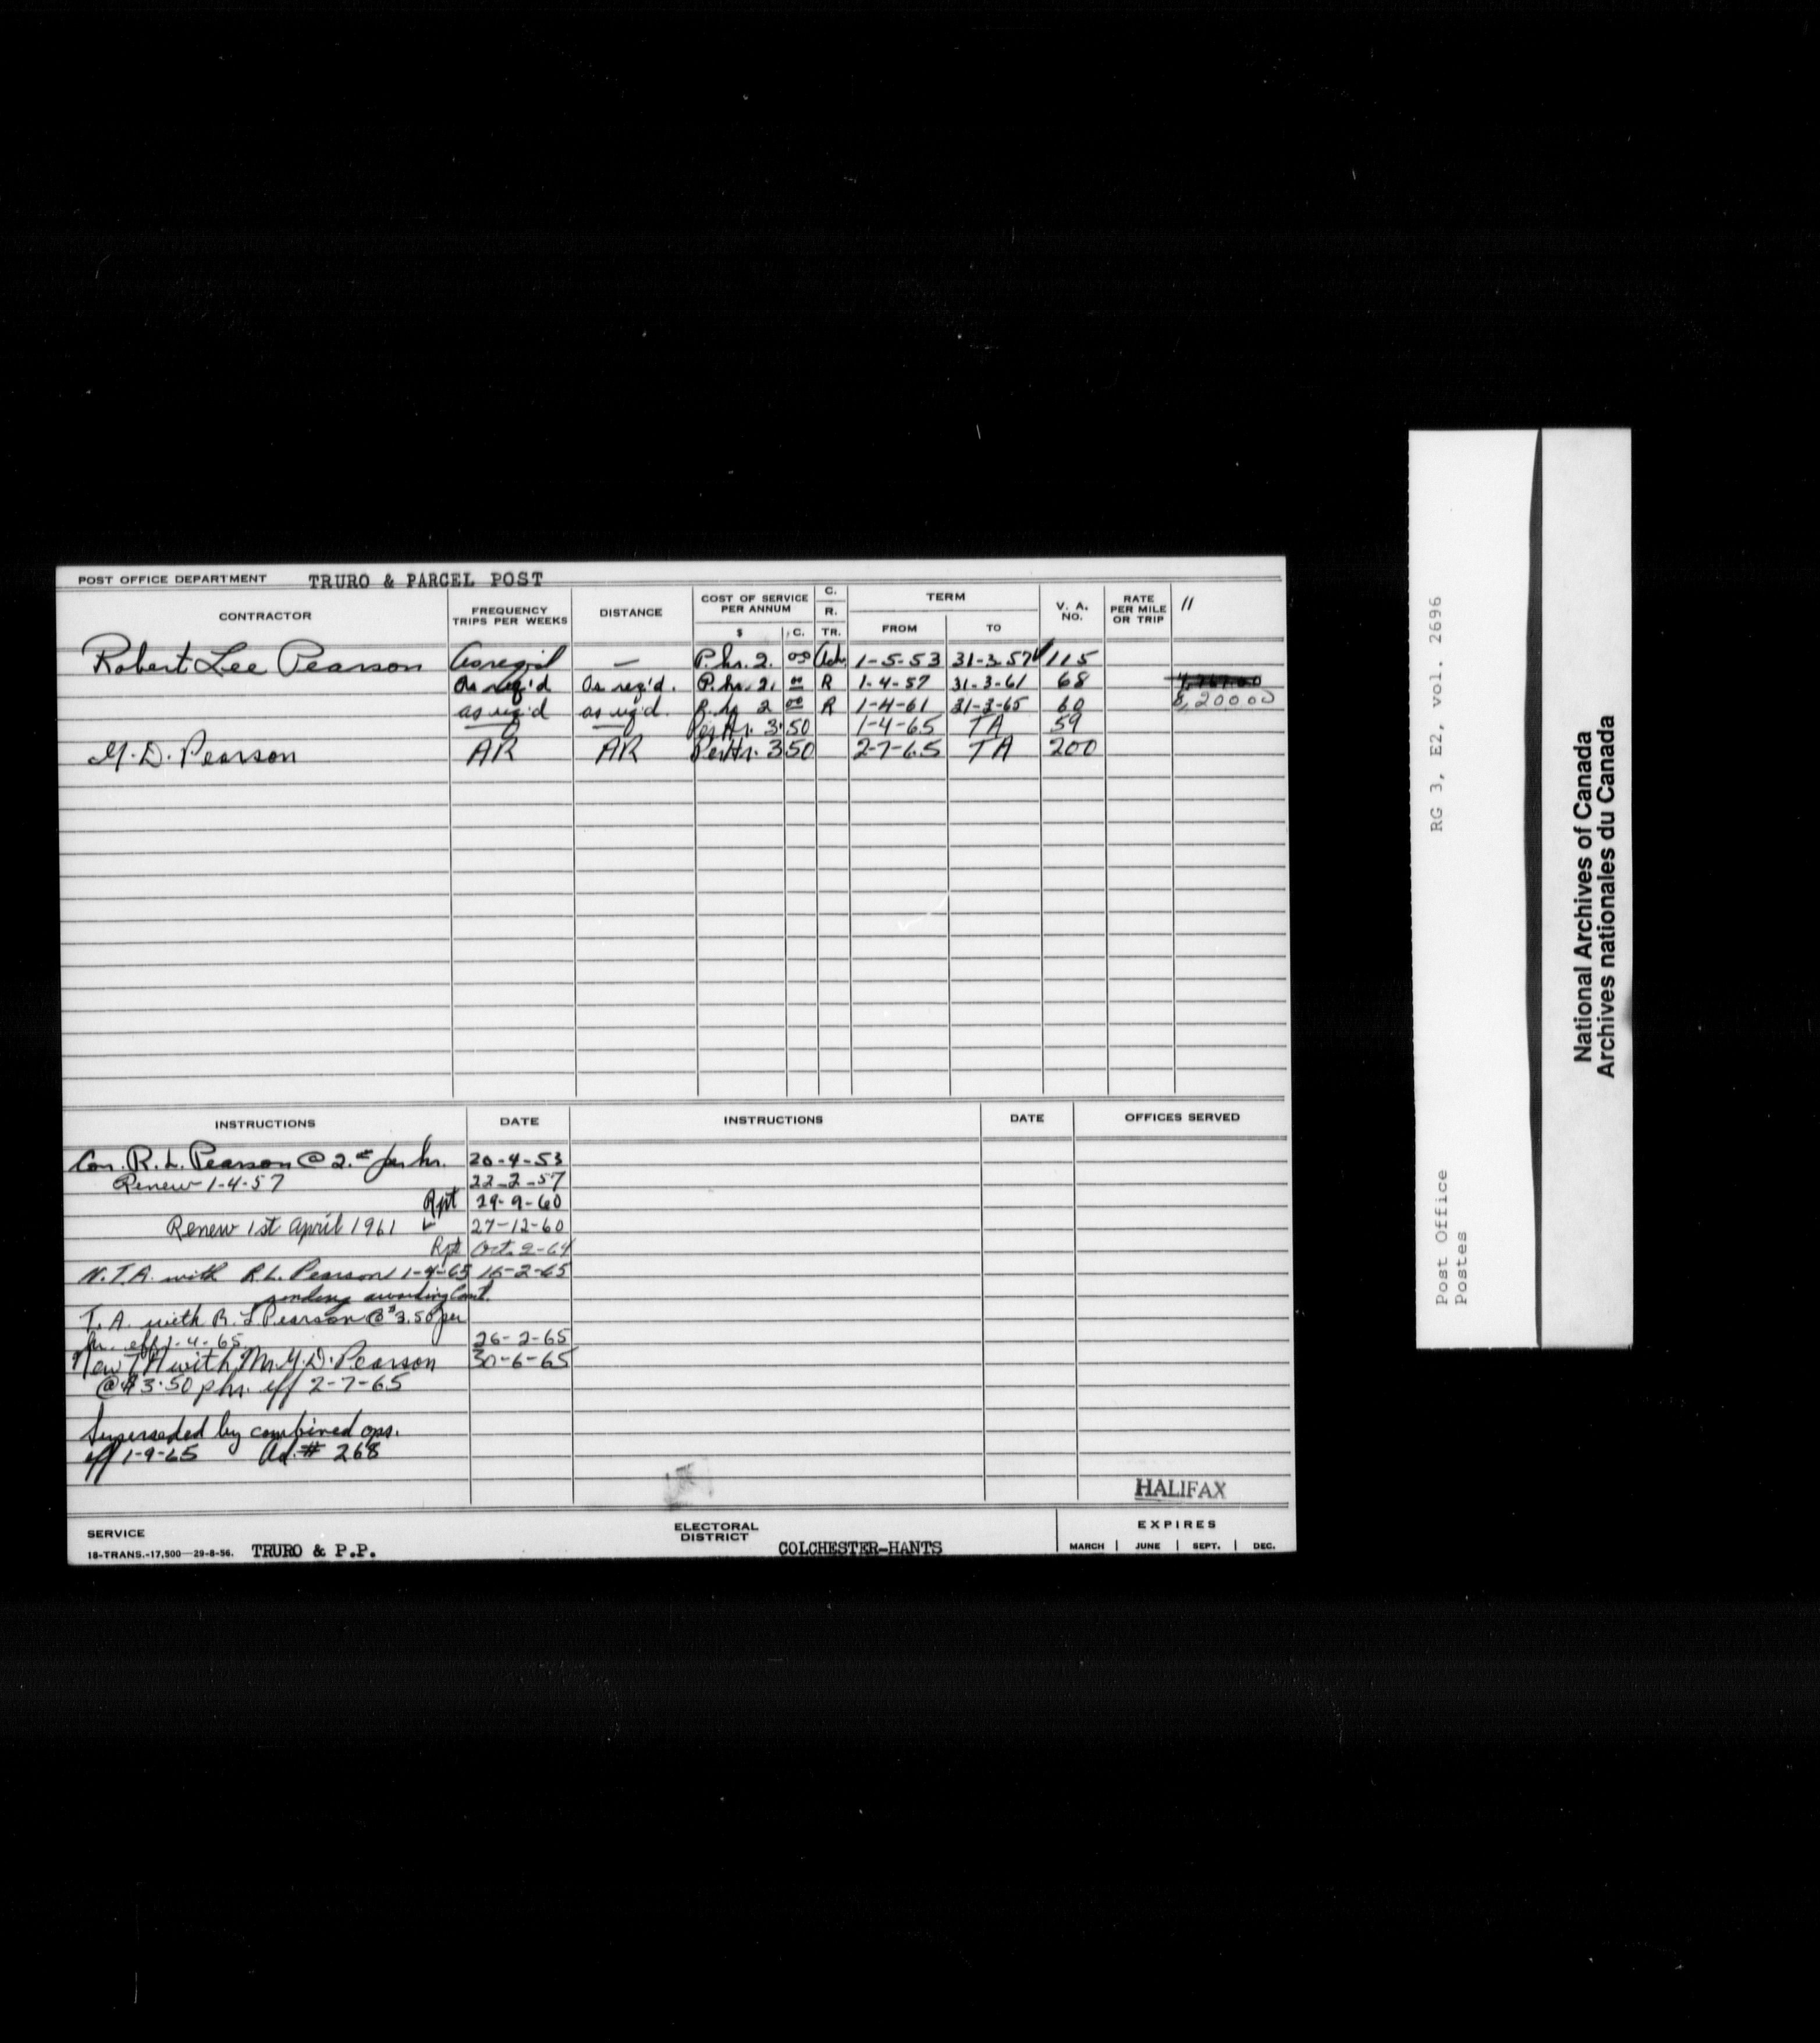 POST OFFICE DEPARTMENT TRURO & PARCEL POST
CONTRACTOR FREQUENCY TRIPS PER WEEKS DISTANCE COST OF SERVICE PER ANNUM $ C. C. R. TR. TERM FROM TO V. A. NO. RATE PER MILE OR TRIP 11
Robert Lee Pearson As req'd — P. hr. 2. 00 1-5-53 31-3-57 115
As req'd As req'd. P. hr. 2. 00 R 1-4-57 31-3-61 68
as req'd as req'd. P. hr 2 00 R 1-4-61 31-3-65 60 8,200 00
Per Hr. 3.50 1-4-65 TA 59
M. D. Pearson AR AR Per Hr. 3.50 2-7-65 TA 200
INSTRUCTIONS DATE INSTRUCTIONS DATE OFFICES SERVED
Con. R. L. Pearson @ 2.00 per hr. 20-4-53
Renew 1-4-57 22-2-57
Rpt 29-9-60
Renew 1st April 1961 27-12-60
Rpt Oct. 2-64
N.T.A. with R.L. Pearson 1-4-65 16-2-65
pending awarding Cont.
T. A. with R. L Pearson @ $3.50 per
hr. eff 1-4-65. 26-2-65
New TA with Mr. M. D. Pearson 30-6-65
@ $3.50 p hr. eff 2-7-65
Superseded by combined ops.
eff 1-9-65 Ad. # 268
HALIFAX
SERVICE ELECTORAL DISTRICT EXPIRES
18-TRANS.-17,500—29-8-56. TRURO & P.P. COLCHESTER-HANTS MARCH JUNE SEPT. DEC.
RG 3, E2, vol. 2696
Post Office
Postes
National Archives of Canada
Archives nationales du Canada